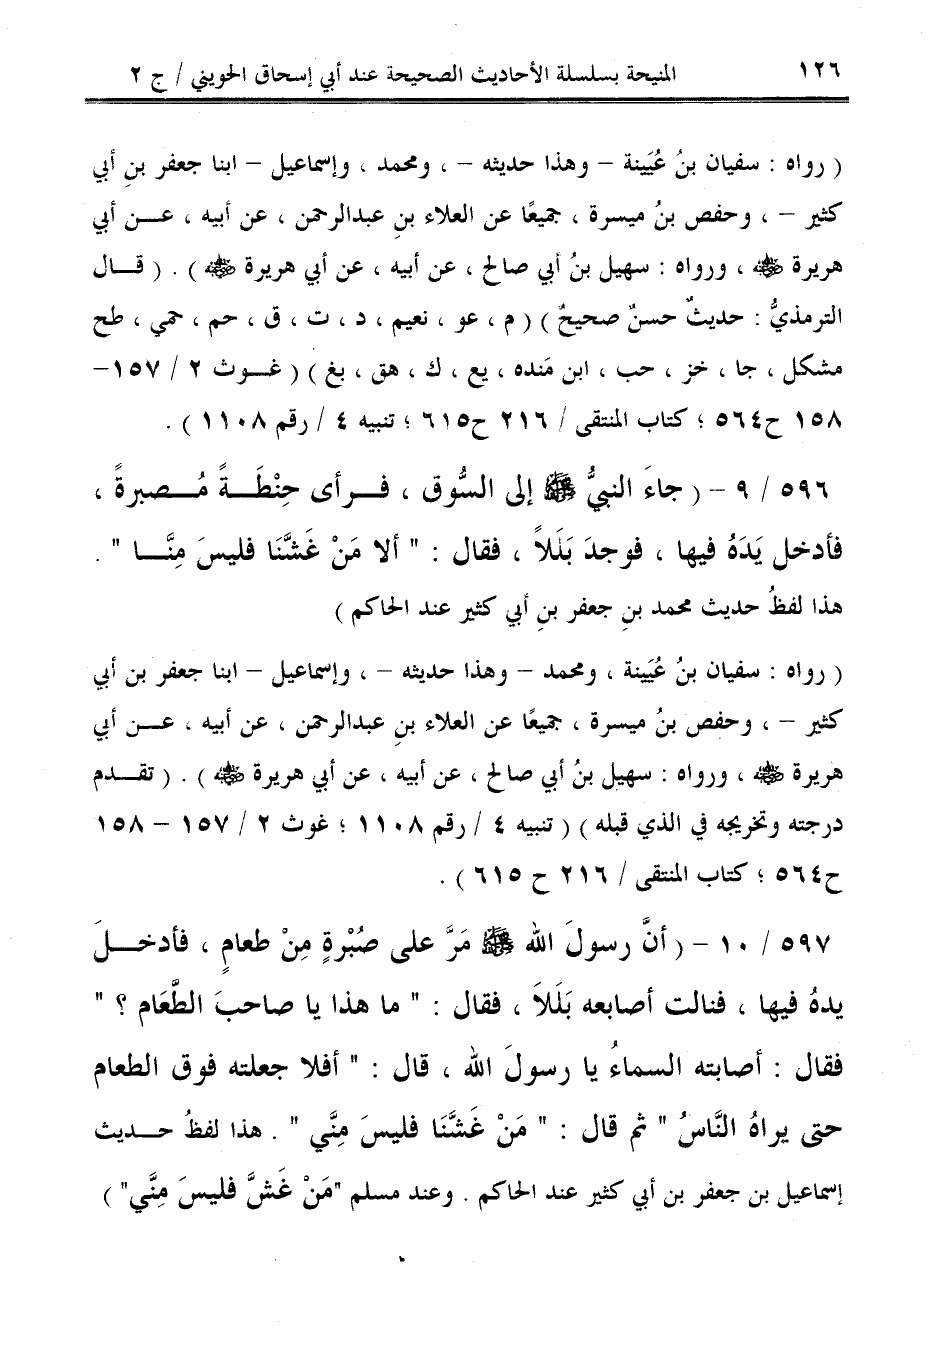 ١٢٦ المنيحة بسلسلة الأحاديث الصحيحة عند أبي إسحاق الحويني / ج ٢
( رواه : سفيان بنُ عُيَينة – وهذا حديثه – ، ومحمد ، وإسماعيل – ابنا جعفر بنِ أبي
كثير – ، وحفص بنُ ميسرة ، جميعًا عن العلاء بنِ عبدالرحمن ، عن أبيه ، عــن أبي
هريرة ﵁ ، ورواه : سهيل بنُ أبي صالح ، عن أبيه ، عن أبي هريرة ﵁ ) . ( قــال
الترمذيُّ : حديثٌ حسنٌ صحيحٌ ) ( م ، عو ، نعيم ، د ، ت ، ق ، حم ، حمي ، طح
مشكل ، جا ، خز ، حب ، ابن مَنده ، يع ، ك ، هق ، بغ ) ( غــوث ٢ / ١٥٧–
١٥٨ ح٥٦٤ ؛ كتاب المنتقى / ٢١٦ ح٦١٥ ؛ تنبيه ٤ / رقم ١١٠٨ ) .
٥٩٦ / ٩ – ( جاءَ النبيُّ ﷺ إلى السُّوق ، فــرأى حِنْطَــةً مُــصبرةً ،
فأدخل يَدَهُ فيها ، فوجدَ بَلَلاً ، فقال : " ألا مَنْ غَشَّنَا فليسَ مِنَّــا " .
هذا لفظُ حديث محمد بنِ جعفر بنِ أبي كثير عند الحاكم )
( رواه : سفيان بنُ عُيَينة ، ومحمد – وهذا حديثه – ، وإسماعيل – ابنا جعفر بن أبي
كثير – ، وحفص بنُ ميسرة ، جميعًا عن العلاء بنِ عبدالرحمن ، عن أبيه ، عــن أبي
هريرة ﵁ ، ورواه : سهيل بنُ أبي صالح ، عن أبيه ، عن أبي هريرة ﵁ ) . ( تقــدم
درجته وتخريجه في الذي قبله ) ( تنبيه ٤ / رقم ١١٠٨ ؛ غوث ٢ / ١٥٧ – ١٥٨
ح٥٦٤ ؛ كتاب المنتقى / ٢١٦ ح ٦١٥ ) .
٥٩٧ / ١٠ – ( أنَّ رسولَ الله ﷺ مَرَّ على صُبْرةٍ مِنْ طعامٍ ، فأدخــلَ
يدهُ فيها ، فنالت أصابعه بَلَلاً ، فقال : " ما هذا يا صاحبَ الطَّعَام ؟ "
فقال : أصابته السماءُ يا رسولَ الله ، قال : " أفلا جعلته فوق الطعام
حتى يراهُ النَّاسُ " ثم قال : " مَنْ غَشَّنَا فليسَ مِنَّي " . هذا لفظُ حــديث
إسماعيل بن جعفر بن أبي كثير عند الحاكم . وعند مسلم "مَنْ غَشَّ فليسَ مِنَّي" )